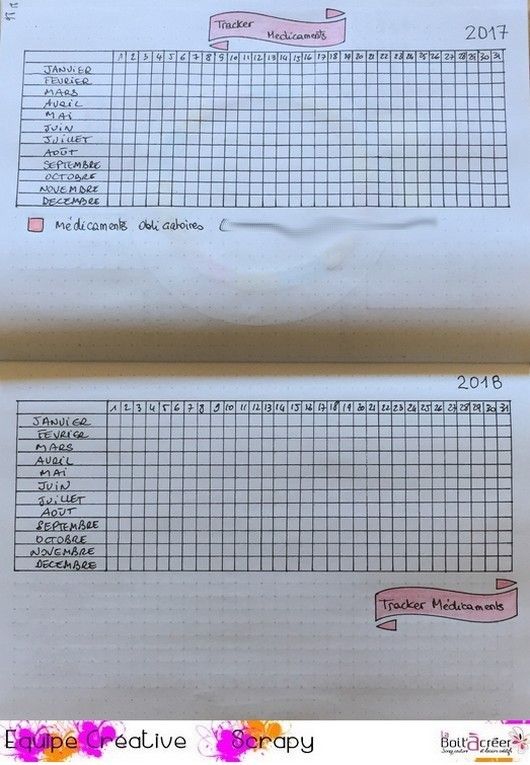 Tracker
Médicaments
2017
1 2 3 4 5 6 7 8 9 10 11 12 13 14 15 16 17 18 19 20 21 22 23 24 25 26 27 28 29 30 31
JANVIER
FEVRIER
MARS
AVRIL
MAI
JUIN
JUILLET
AOÛT
SEPTEMBRE
OCTOBRE
NOVEMBRE
DECEMBRE
Médicaments obligatoires (
2018
1 2 3 4 5 6 7 8 9 10 11 12 13 14 15 16 17 18 19 20 21 22 23 24 25 26 27 28 29 30 31
JANVIER
FEVRIER
MARS
AVRIL
MAI
JUIN
JUILLET
AOÛT
SEPTEMBRE
OCTOBRE
NOVEMBRE
DECEMBRE
Tracker Médicaments
Equipe Créative Scrapy
La BoitàCréer